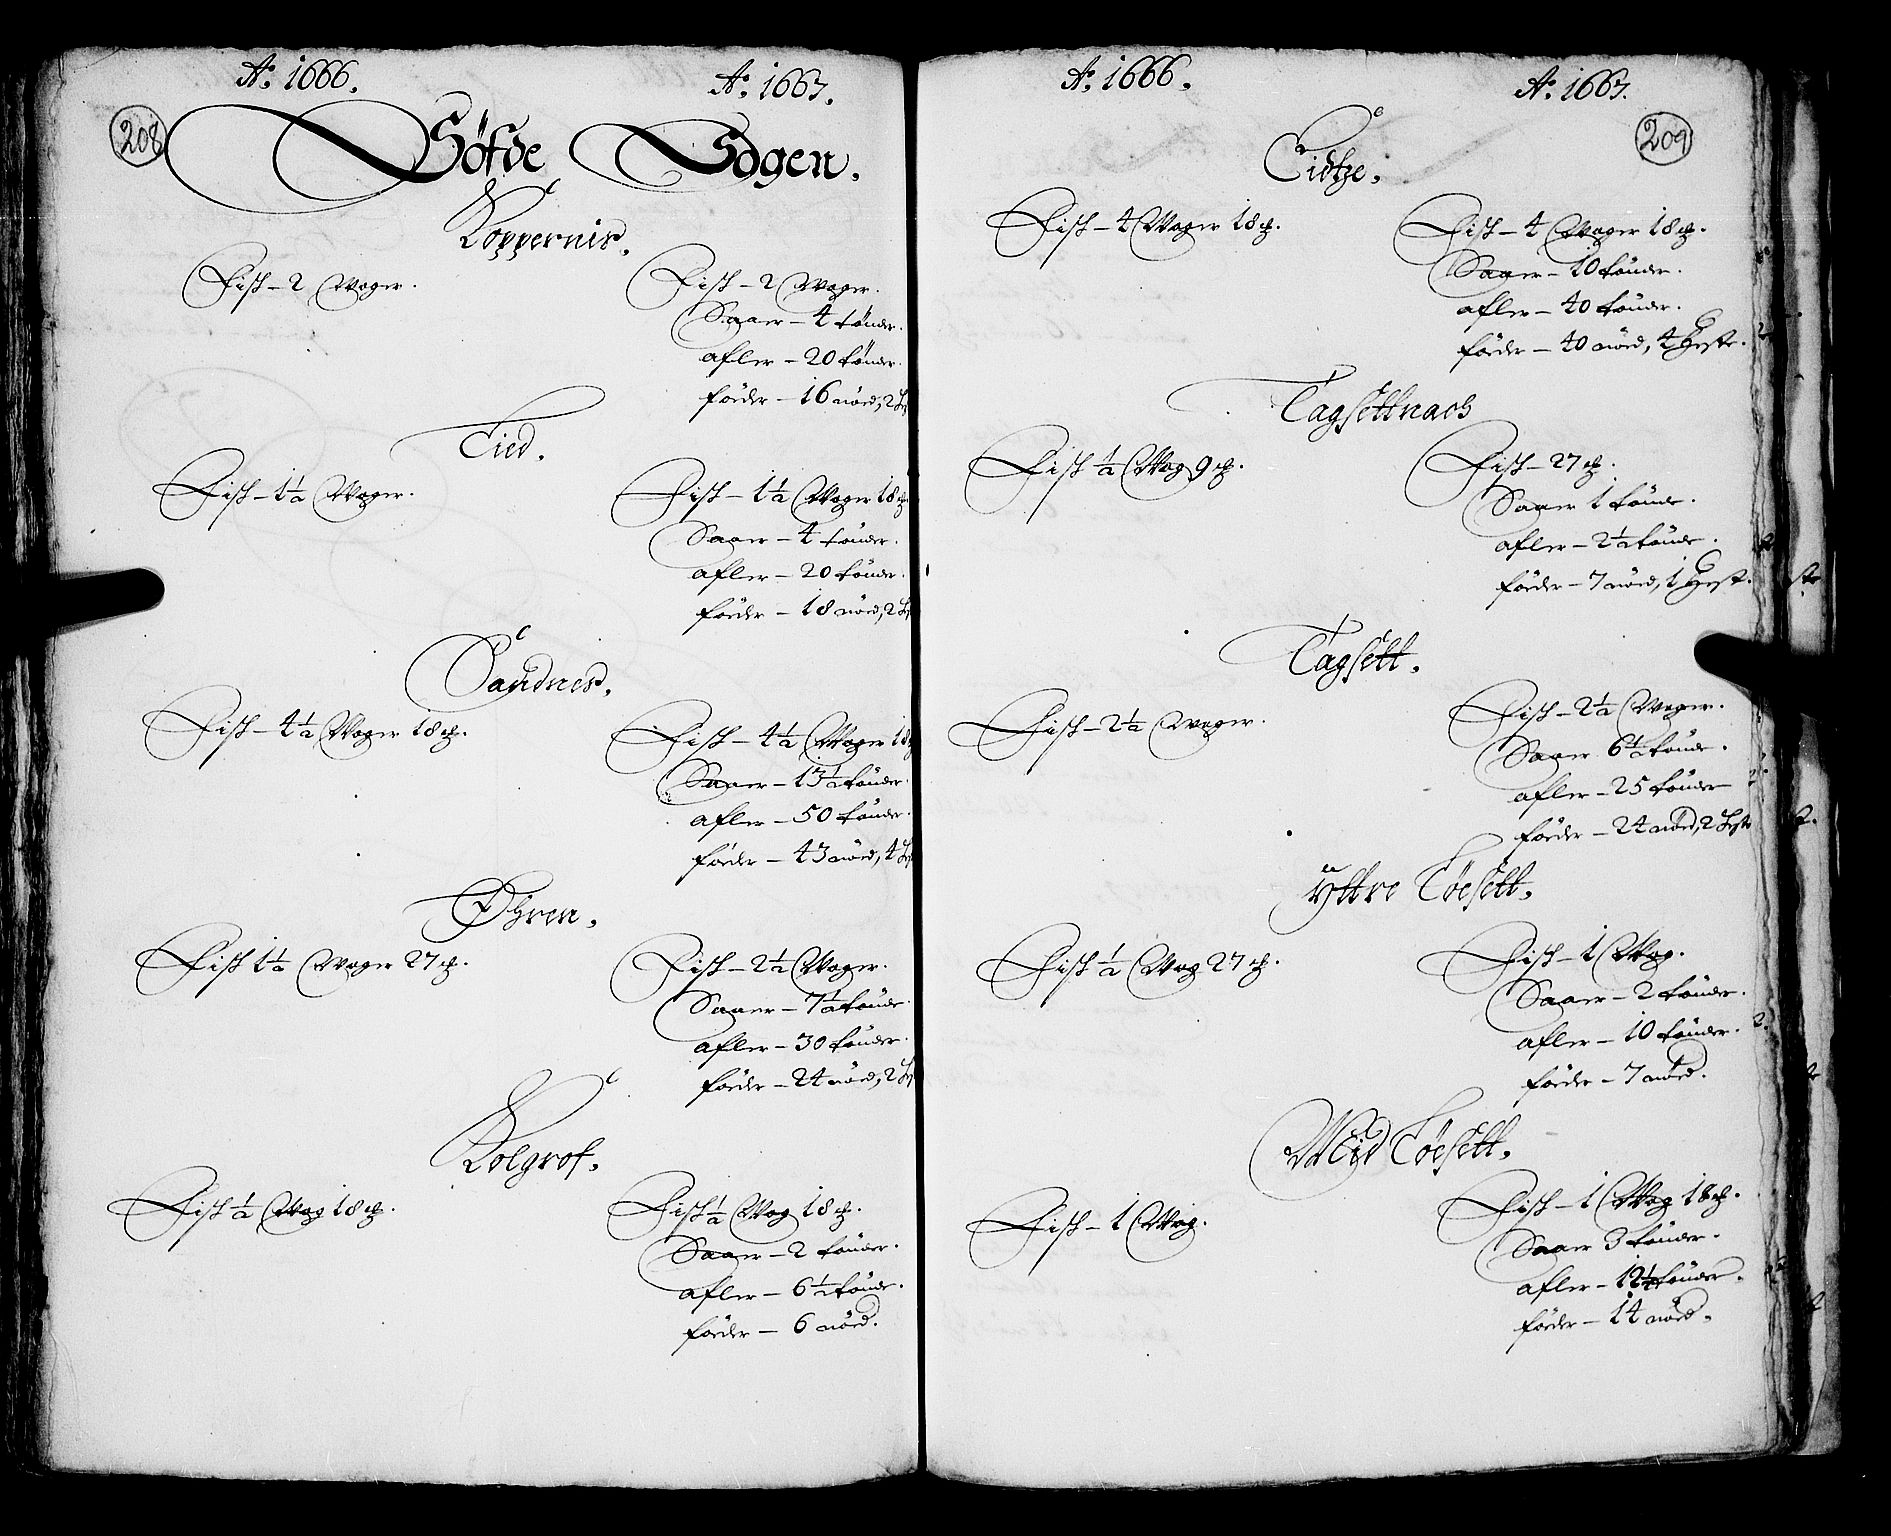 208
Aº. 1666. Aº. 1667.
Söfde Sogen.
Koppernis.
Fisk – 2 Woger. Fisk – 2 Woger.
Saaer – 4 tönder.
afler – 20 tönder.
föeder – 16 nöed, 2
Eied.
Fisk – 1½ Woger. Fisk – 1½ Woger 18 ℔
Saaer – 4 tönder.
afler – 20 tönder.
föeder – 18 nöed, 2
Sandnes.
Fisk – 4½ Woger 18 ℔. Fisk – 4½ Woger 18
Saaer – 13½ tönder.
afler – 50 tönder.
föeder – 43 nöed, 4
Øhren.
Fisk 1½ Woger 27 ℔. Fisk – 2½ Woger.
Saaer – 7½ tönde
afler – 30 tönder.
föeder – 24 nöed, 2
Kolgrof.
Fisk ½ Wog 18 ℔. Fisk ½ Wog 18 ℔.
Saaer – 2 tönder.
afler – 6½ tönde.
föeder – 6 nöed.
209
Aº. 1666. Aº. 1667.
Eidtze.
Fisk – 4 Woger 18 ℔. Fisk – 4 Woger 18 ℔.
Saaer – 10 tönder.
afler – 40 tönder.
föeder – 40 nöed, 4 Heste.
Tagsettnach
Fisk ½ Wog 9 ℔. Fisk – 27 ℔.
Saaer 1 tönde.
afler – 2½ tönde.
föeder – 7 nöed, 1 Hest.
Tagsett.
Fisk – 2½ woger. Fisk – 2½ Woger.
Saaer 6½ tönde.
afler – 25 tönder
föeder – 24 nöed, 2 Heste
Yttre Töesett.
Fisk ½ Wog 27 ℔. Fisk – 1 Wog.
Saaer – 2 tönder.
afler – 10 tönder.
föeder – 7 nöed.
Mid Töesett.
Fisk – 1 Wog. Fisk – 1 Wog 18 ℔.
Saaer 3 tönder.
afler – 12½ tönder.
föeder – 14 nöed.